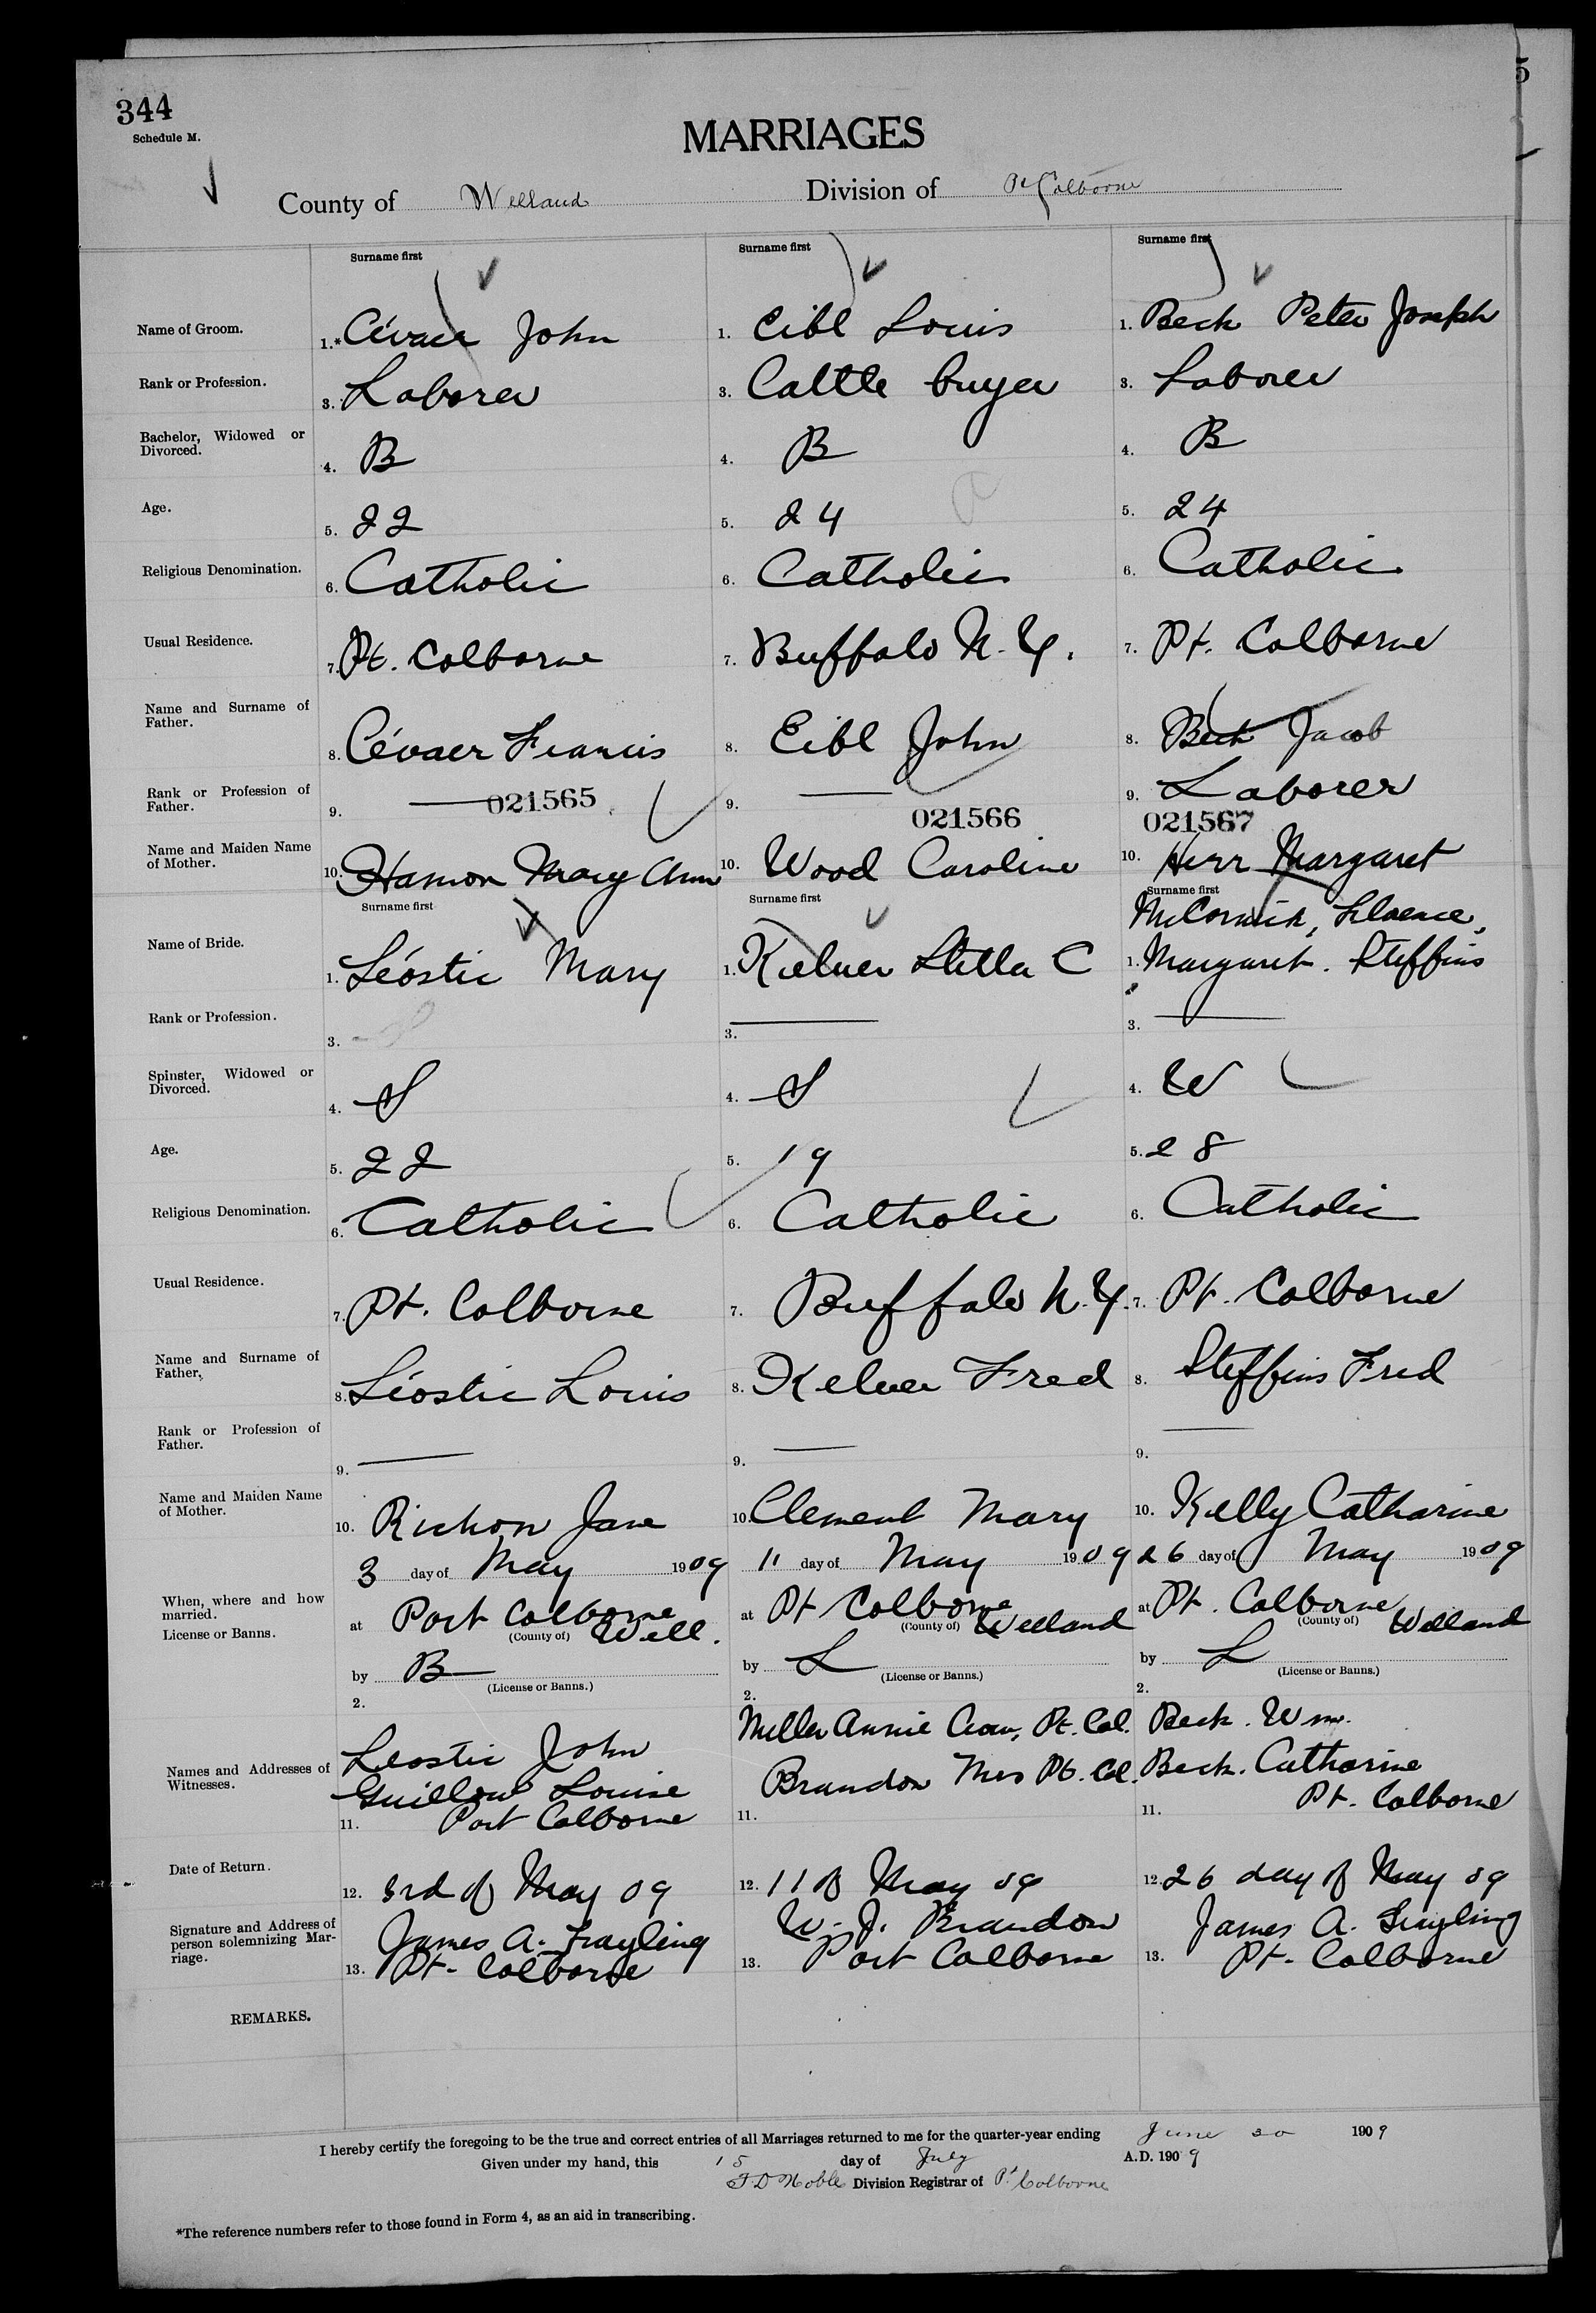 344
Schedule M.
MARRIAGES
County of Welland Division of Pt Colborne
Surname first Surname first Surname first
Name of Groom. 1.* Cévaer John 1. Eibl Louis 1. Beck Peter Joseph
Rank or Profession. 3. Laborer 3. Cattle buyer 3. Laborer
Bachelor, Widowed or Divorced. 4. B 4. B 4. B
Age. 5. 22 5. 24 5. 24
Religious Denomination. 6. Catholic 6. Catholic 6. Catholic
Usual Residence. 7. Pt. Colborne 7. Buffalo N. Y. 7. Pt. Colborne
Name and Surname of Father. 8. Cévaer Francis 8. Eibl John 8. Beck Jacob
Rank or Profession of Father. 9. — 021565 9. — 021566 9. Laborer 021567
Name and Maiden Name of Mother. 10. Hamon Mary Ann 10. Wood Caroline 10. Herr Margaret
Surname first Surname first Surname first
McCormick, Florence,
Name of Bride. 1. Léostic Mary 1. Kelner Stella C 1. Margaret. Steffins
Rank or Profession. 3. 3. — 3. —
Spinster, Widowed or Divorced. 4. S 4. S 4. W
Age. 5. 22 5. 19 5. 28
Religious Denomination. 6. Catholic 6. Catholic 6. Catholic
Usual Residence. 7. Pt. Colborne 7. Buffalo N. Y. 7. Pt. Colborne
Name and Surname of Father. 8. Léostic Louis 8. Kelner Fred 8. Steffins Fred
Rank or Profession of Father. 9. — 9. — 9. —
Name and Maiden Name of Mother. 10. Richon Jane 10. Clement Mary 10. Kelly Catharine
3 day of May 1909 11 day of May 1909 26 day of May 1909
When, where and how married. at Port Colborne (County of) Well. at Pt Colborne (County of) Welland at Pt. Colborne (County of) Welland
License or Banns. by B (License or Banns.) by L (License or Banns.) by L (License or Banns.)
2. 2. 2.
Names and Addresses of Witnesses. Leostic John Miller Annie Pt. Col. Beck. Wm.
Guillou Louise Brandon Mrs Pt. Col. Beck. Catharine
11. Port Colborne 11. 11. Pt. Colborne
Date of Return. 12. 3rd of May 09 12. 11 of May 09 12. 26 day of May 09
Signature and Address of person solemnizing Marriage. James A. Trayling W. J. Brandon James A. Trayling
13. Pt. Colborne 13. Port Colborne 13. Pt. Colborne
REMARKS.
I hereby certify the foregoing to be the true and correct entries of all Marriages returned to me for the quarter-year ending June 30 1909
Given under my hand, this 15 day of July A.D. 1909
F. D Noble Division Registrar of Pt Colborne
*The reference numbers refer to those found in Form 4, as an aid in transcribing.